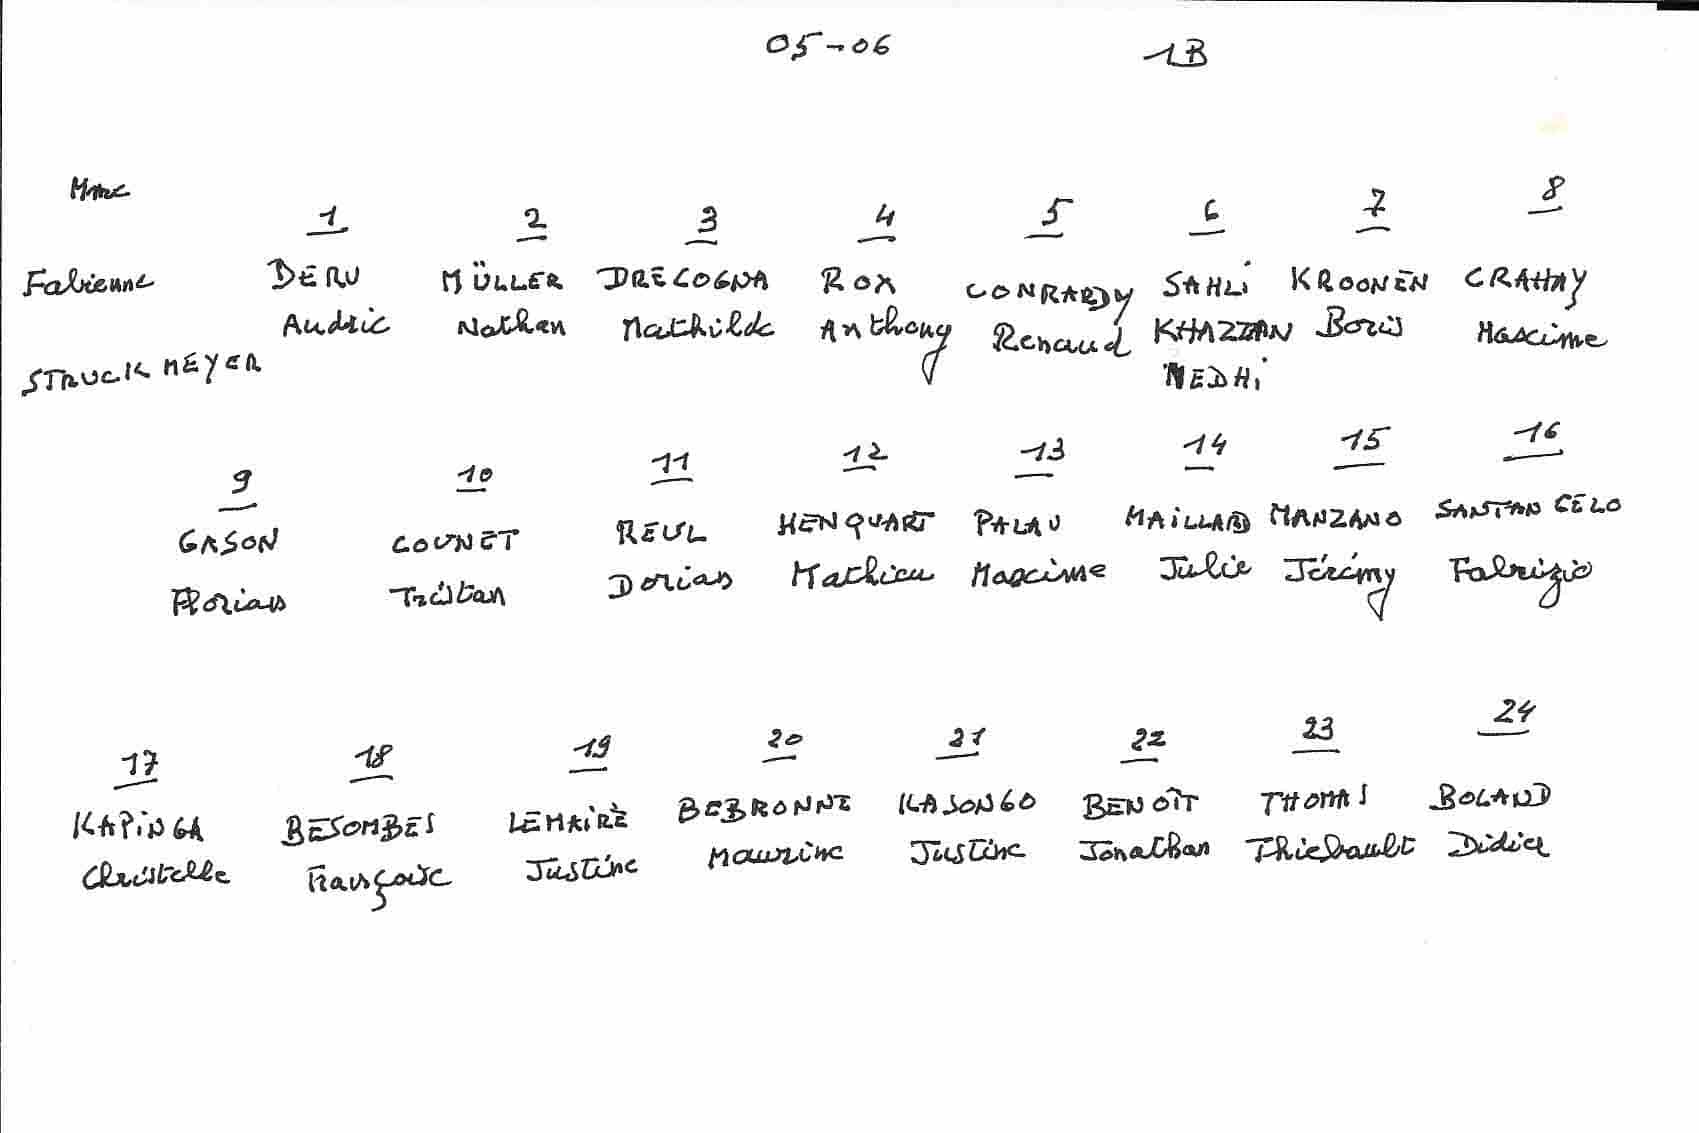 05-06 1B
Mme
1 2 3 4 5 6 7 8
Fabienne DERU MÜLLER DRECOGNA ROX CONRARDY SAHLi KROONEN CRAHAY
Audric Nathan Mathilde Anthony Renaud KHAZZAN Boris Maxime
STRUCKMEYER NEDHi
9 10 11 12 13 14 15 16
GASON COUNET REUL HENQUART PALAU MAiLLARD MANZANO SANTANGELO
Florian Tristan Dorian Mathieu Maxime Julie Jérémy Fabrizio
17 18 19 20 21 22 23 24
KAPiNGA BESOMBES LEMAiRE BEBRONNE KASONGO BENOÎT THOMAS BOLAND
Christelle Françoise Justine Maurine Justine Jonathan Thiebault Didier